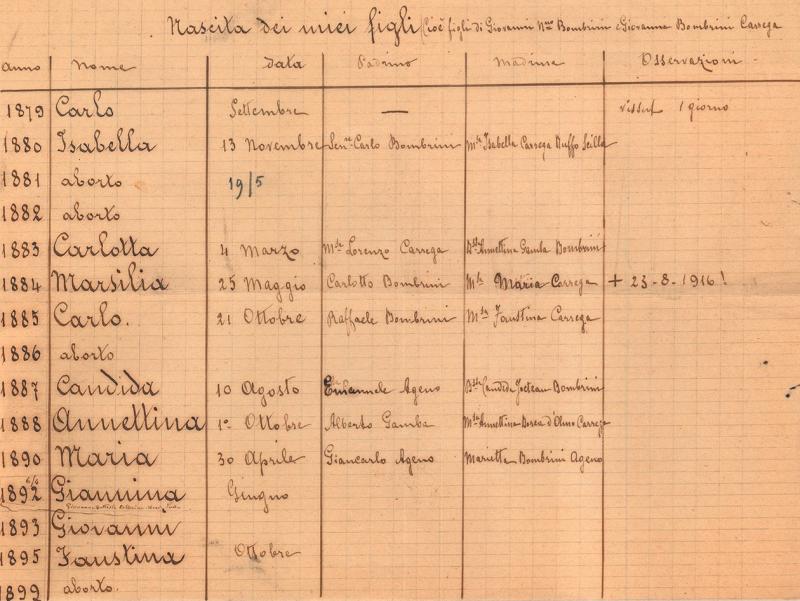 Nascita dei miei figli (Cioè figli di Giovanni Bombrini e Giovanna Bombrini Carrega
anno nome data Padrino Madrina Osservazioni -
1879 Carlo Settembre — visse 1 giorno
1880 Isabella 13 Novembre Carlo Bombrini Isabella Carrega Ruffo Scilla
1881 aborto 19/5
1882 aborto
1883 Carlotta 4 Marzo Lorenzo Carrega Annettina Gamba Bombrini
1884 Marsilia 25 Maggio Carlotto Bombrini Maria Carrega + 23-8-1916!
1885 Carlo. 21 Ottobre Raffaele Bombrini Faustina Carrega
1886 aborto
1887 Candida 10 Agosto Emanuele Ageno Candida Bombrini
1888 Annettina 1º Ottobre Alberto Gamba Annettina Borea d'Olmo Carrega
1890 Maria 30 Aprile Giancarlo Ageno Marietta Bombrini Ageno
1892 Giannina Giugno
1893 Giovanni
1895 Faustina Ottobre
1899 aborto.